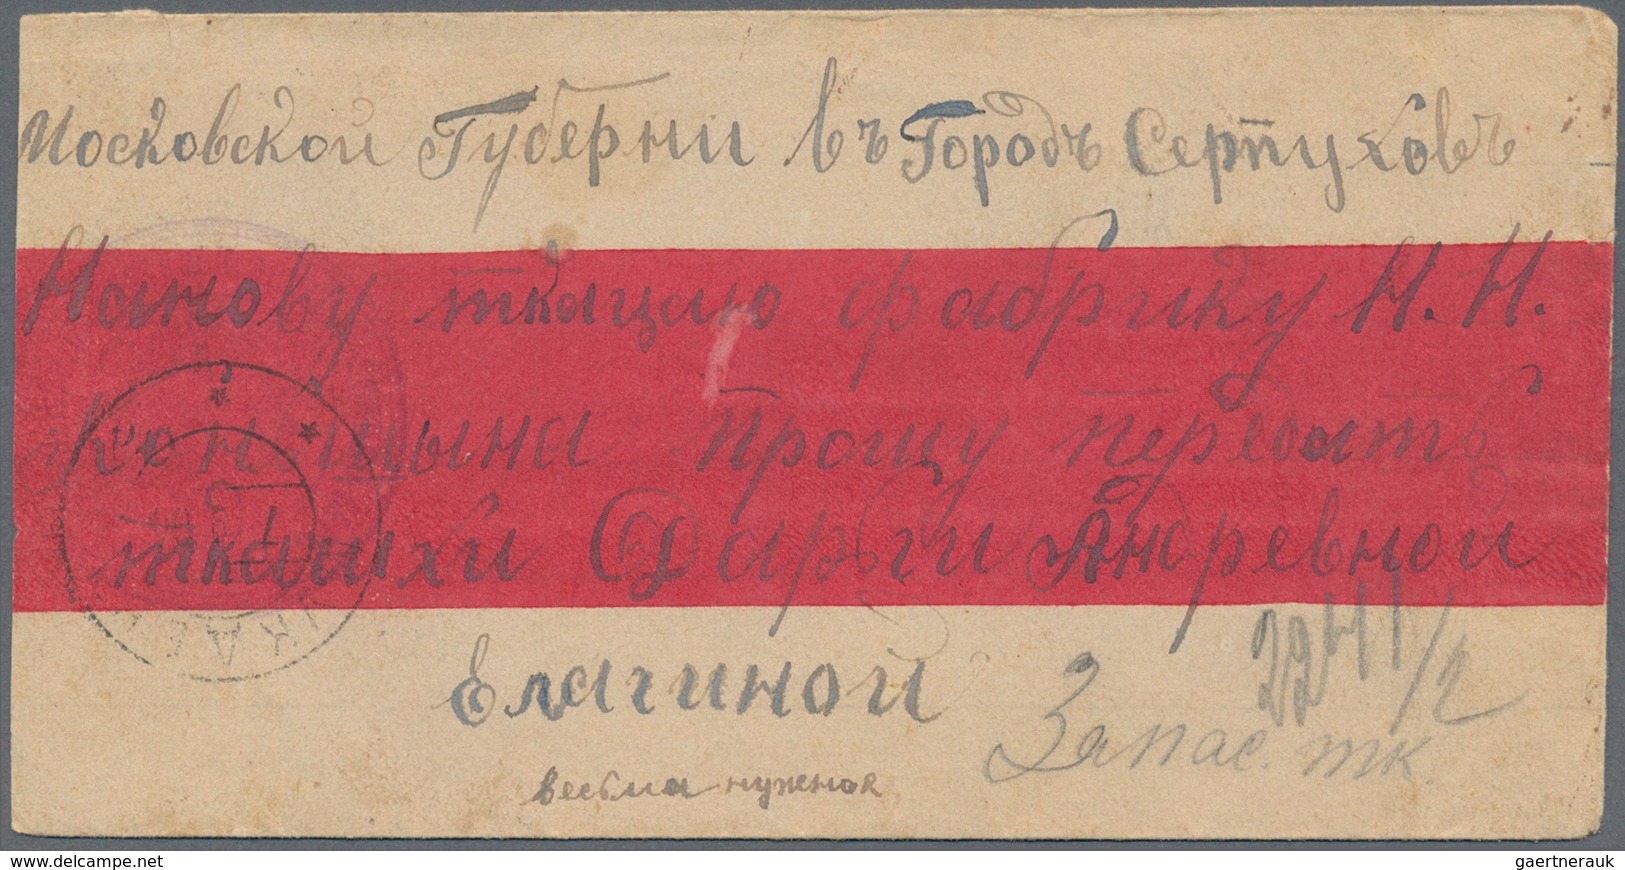 Московской Губерни въ Городъ Серпуховъ
Нанову ткацкую фабрику Н. Н.
Коншына Прошу передать
ткачихи Дарьи Анревной
Елагиной
2241 1/2
Запас. тк.
весьма нужное
www.delcampe.net
gaertnerauk